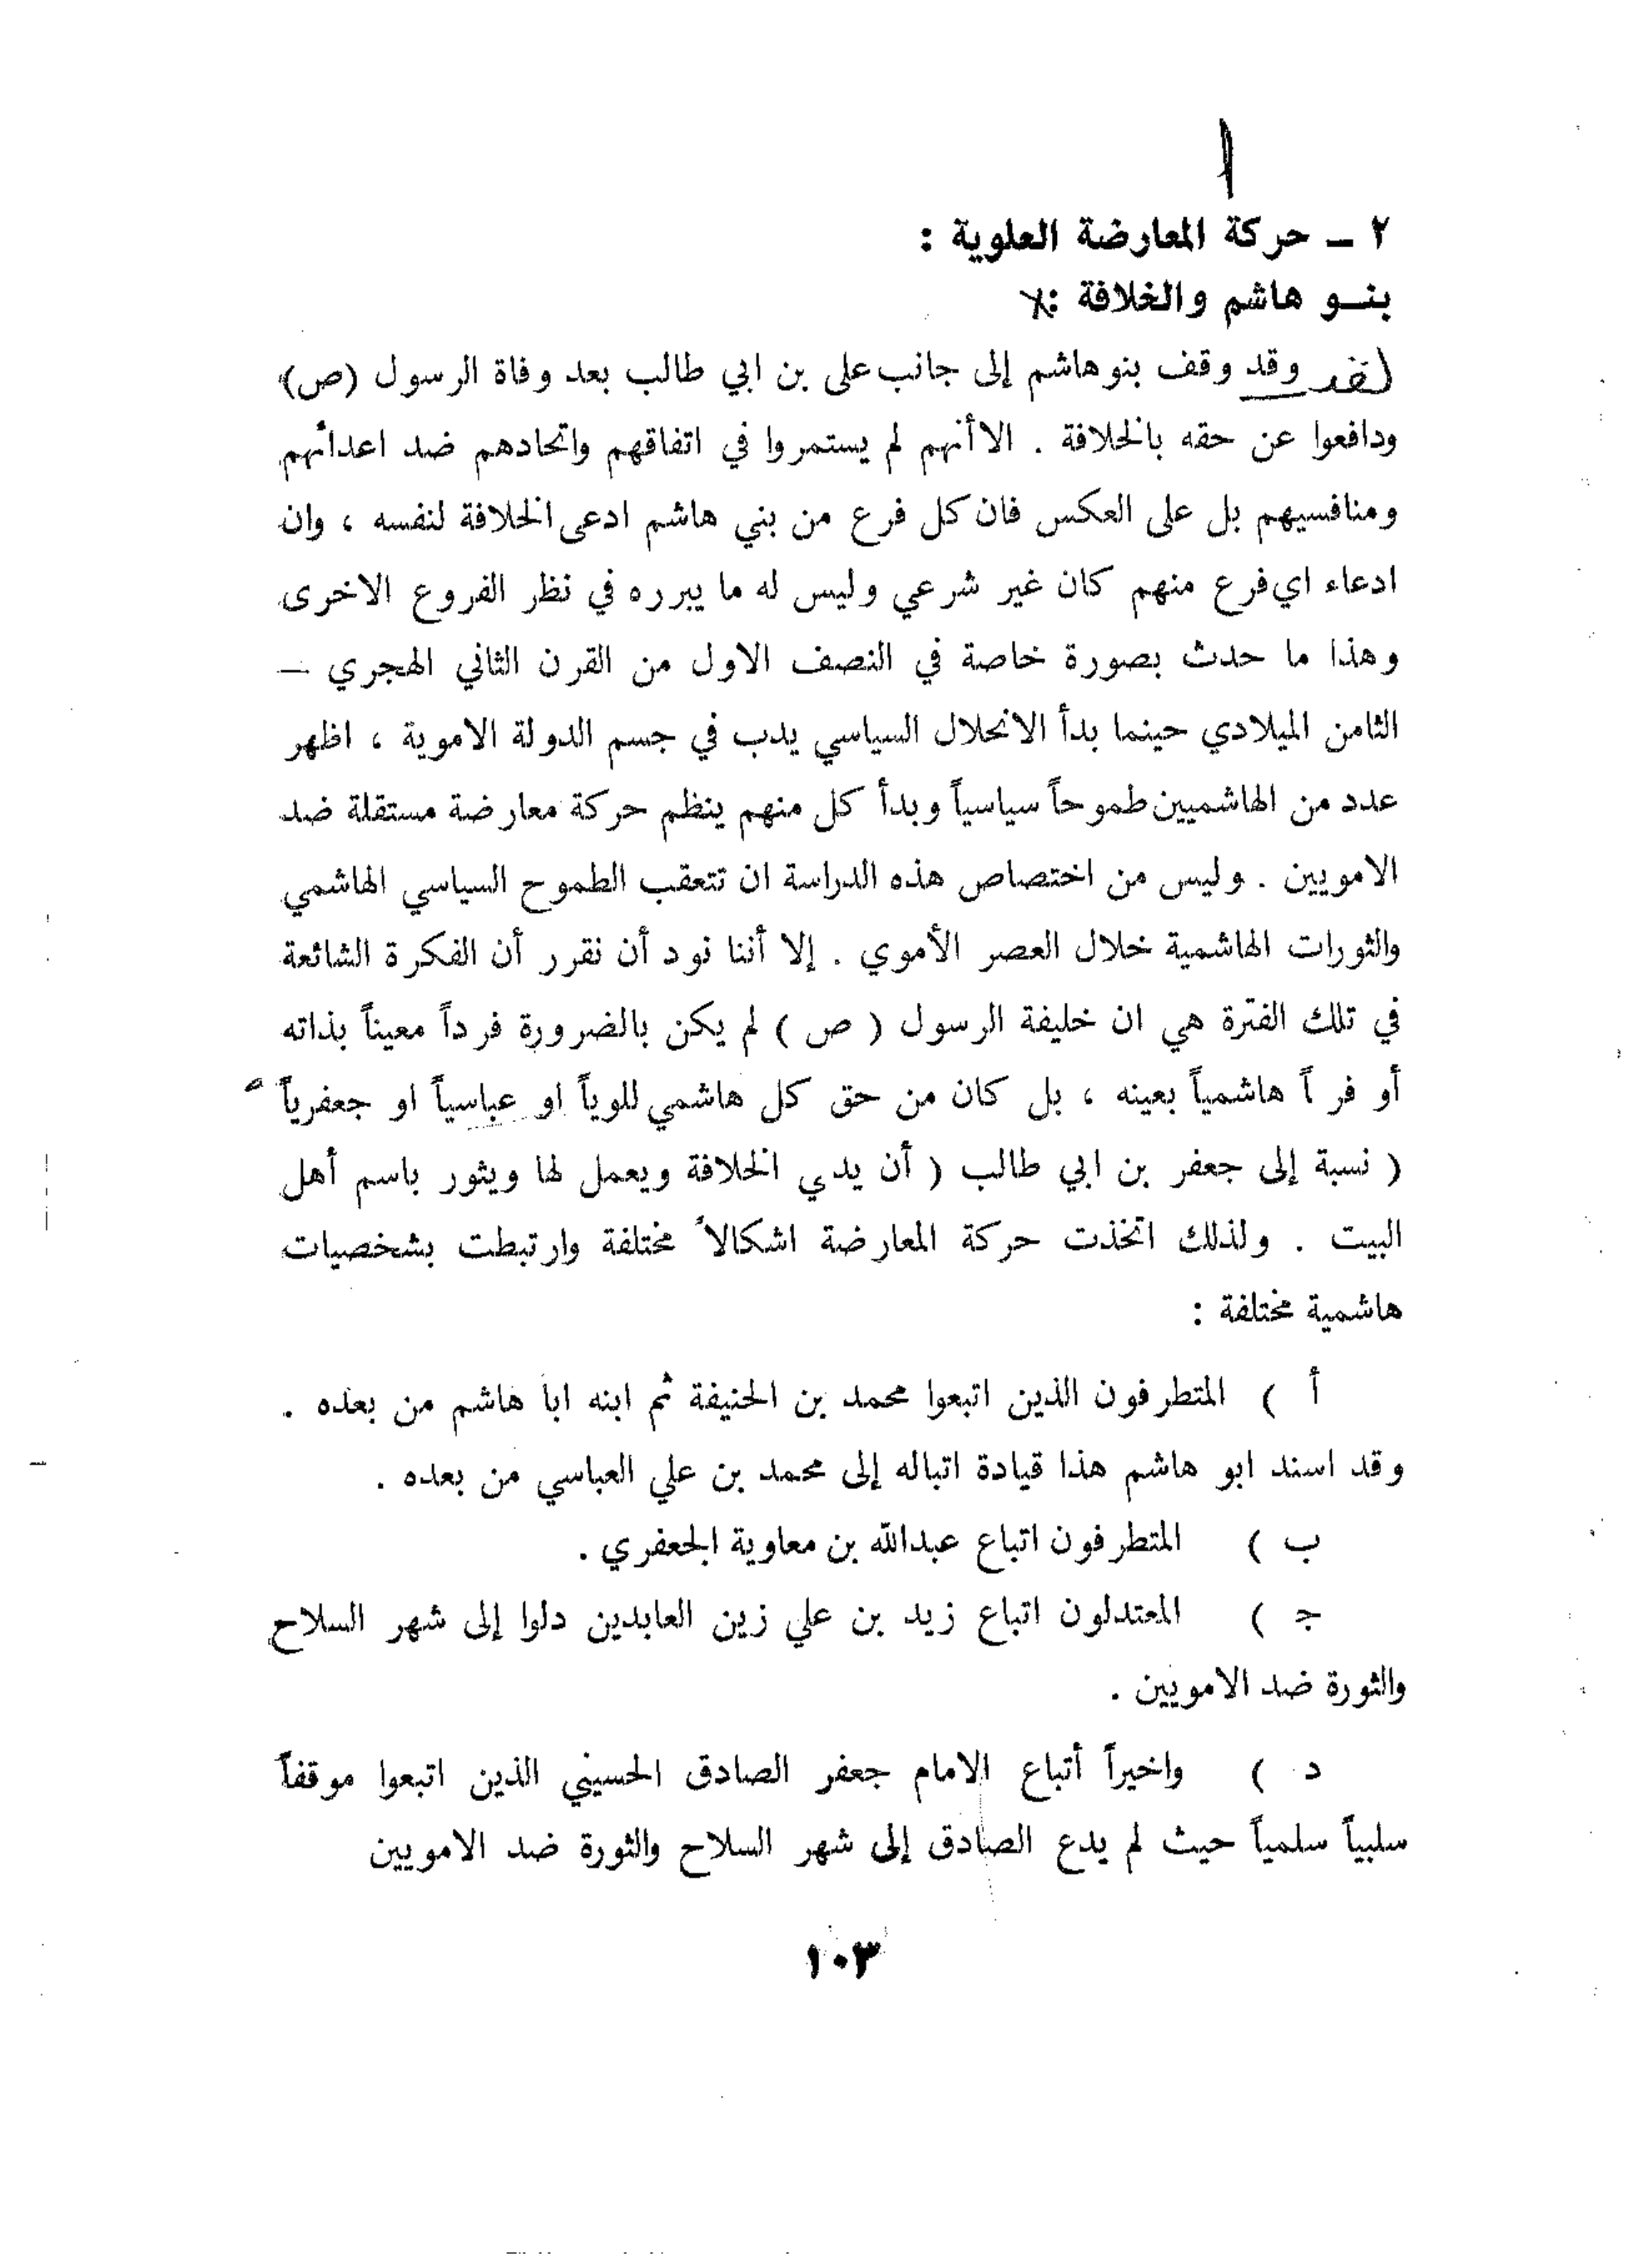 ٢ ـ حركة المعارضة العلوية :
بنـو هاشم والخلافة :
لقد وقد وقف بنو هاشم إلى جانب على بن ابي طالب بعد وفاة الرسول (ص)
ودافعوا عن حقه بالخلافة . الا أنهم لم يستمروا في اتفاقهم واتحادهم ضد اعدائهم
ومنافسيهم بل على العكس فان كل فرع من بني هاشم ادعى الخلافة لنفسه ، وان
ادعاء اي فرع منهم كان غير شرعي وليس له ما يبرره في نظر الفروع الاخرى
وهذا ما حدث بصورة خاصة في النصف الاول من القرن الثاني الهجري ـ
الثامن الميلادي حينما بدأ الانحلال السياسي يدب في جسم الدولة الاموية ، اظهر
عدد من الهاشميين طموحاً سياسياً وبدأ كل منهم ينظم حركة معارضة مستقلة ضد
الامويين . وليس من اختصاص هذه الدراسة ان تتعقب الطموح السياسي الهاشمي
والثورات الهاشمية خلال العصر الأموي . إلا أننا نود أن نقرر أن الفكرة الشائعة
في تلك الفترة هي ان خليفة الرسول ( ص ) لم يكن بالضرورة فرداً معيناً بذاته
أو فر اً هاشمياً بعينه ، بل كان من حق كل هاشمي للوياً او عباسياً او جعفرياً
( نسبة إلى جعفر بن ابي طالب ( أن يدي الخلافة ويعمل لها ويثور باسم أهل
البيت . ولذلك اتخذت حركة المعارضة اشكالاً مختلفة وارتبطت بشخصيات
هاشمية مختلفة :
أ ) المتطرفون الذين اتبعوا محمد بن الحنيفة ثم ابنه ابا هاشم من بعده .
وقد اسند ابو هاشم هذا قيادة اتباله إلى محمد بن علي العباسي من بعده .
ب ) المتطرفون اتباع عبدالله بن معاوية الجعفري .
جـ ) المعتدلون اتباع زيد بن علي زين العابدين دلوا إلى شهر السلاح
والثورة ضد الامويين .
د ) واخيراً أتباع الامام جعفر الصادق الحسيني الذين اتبعوا موقفاً
سلبياً سلمياً حيث لم يدع الصادق إلى شهر السلاح والثورة ضد الامويين
١٠٣